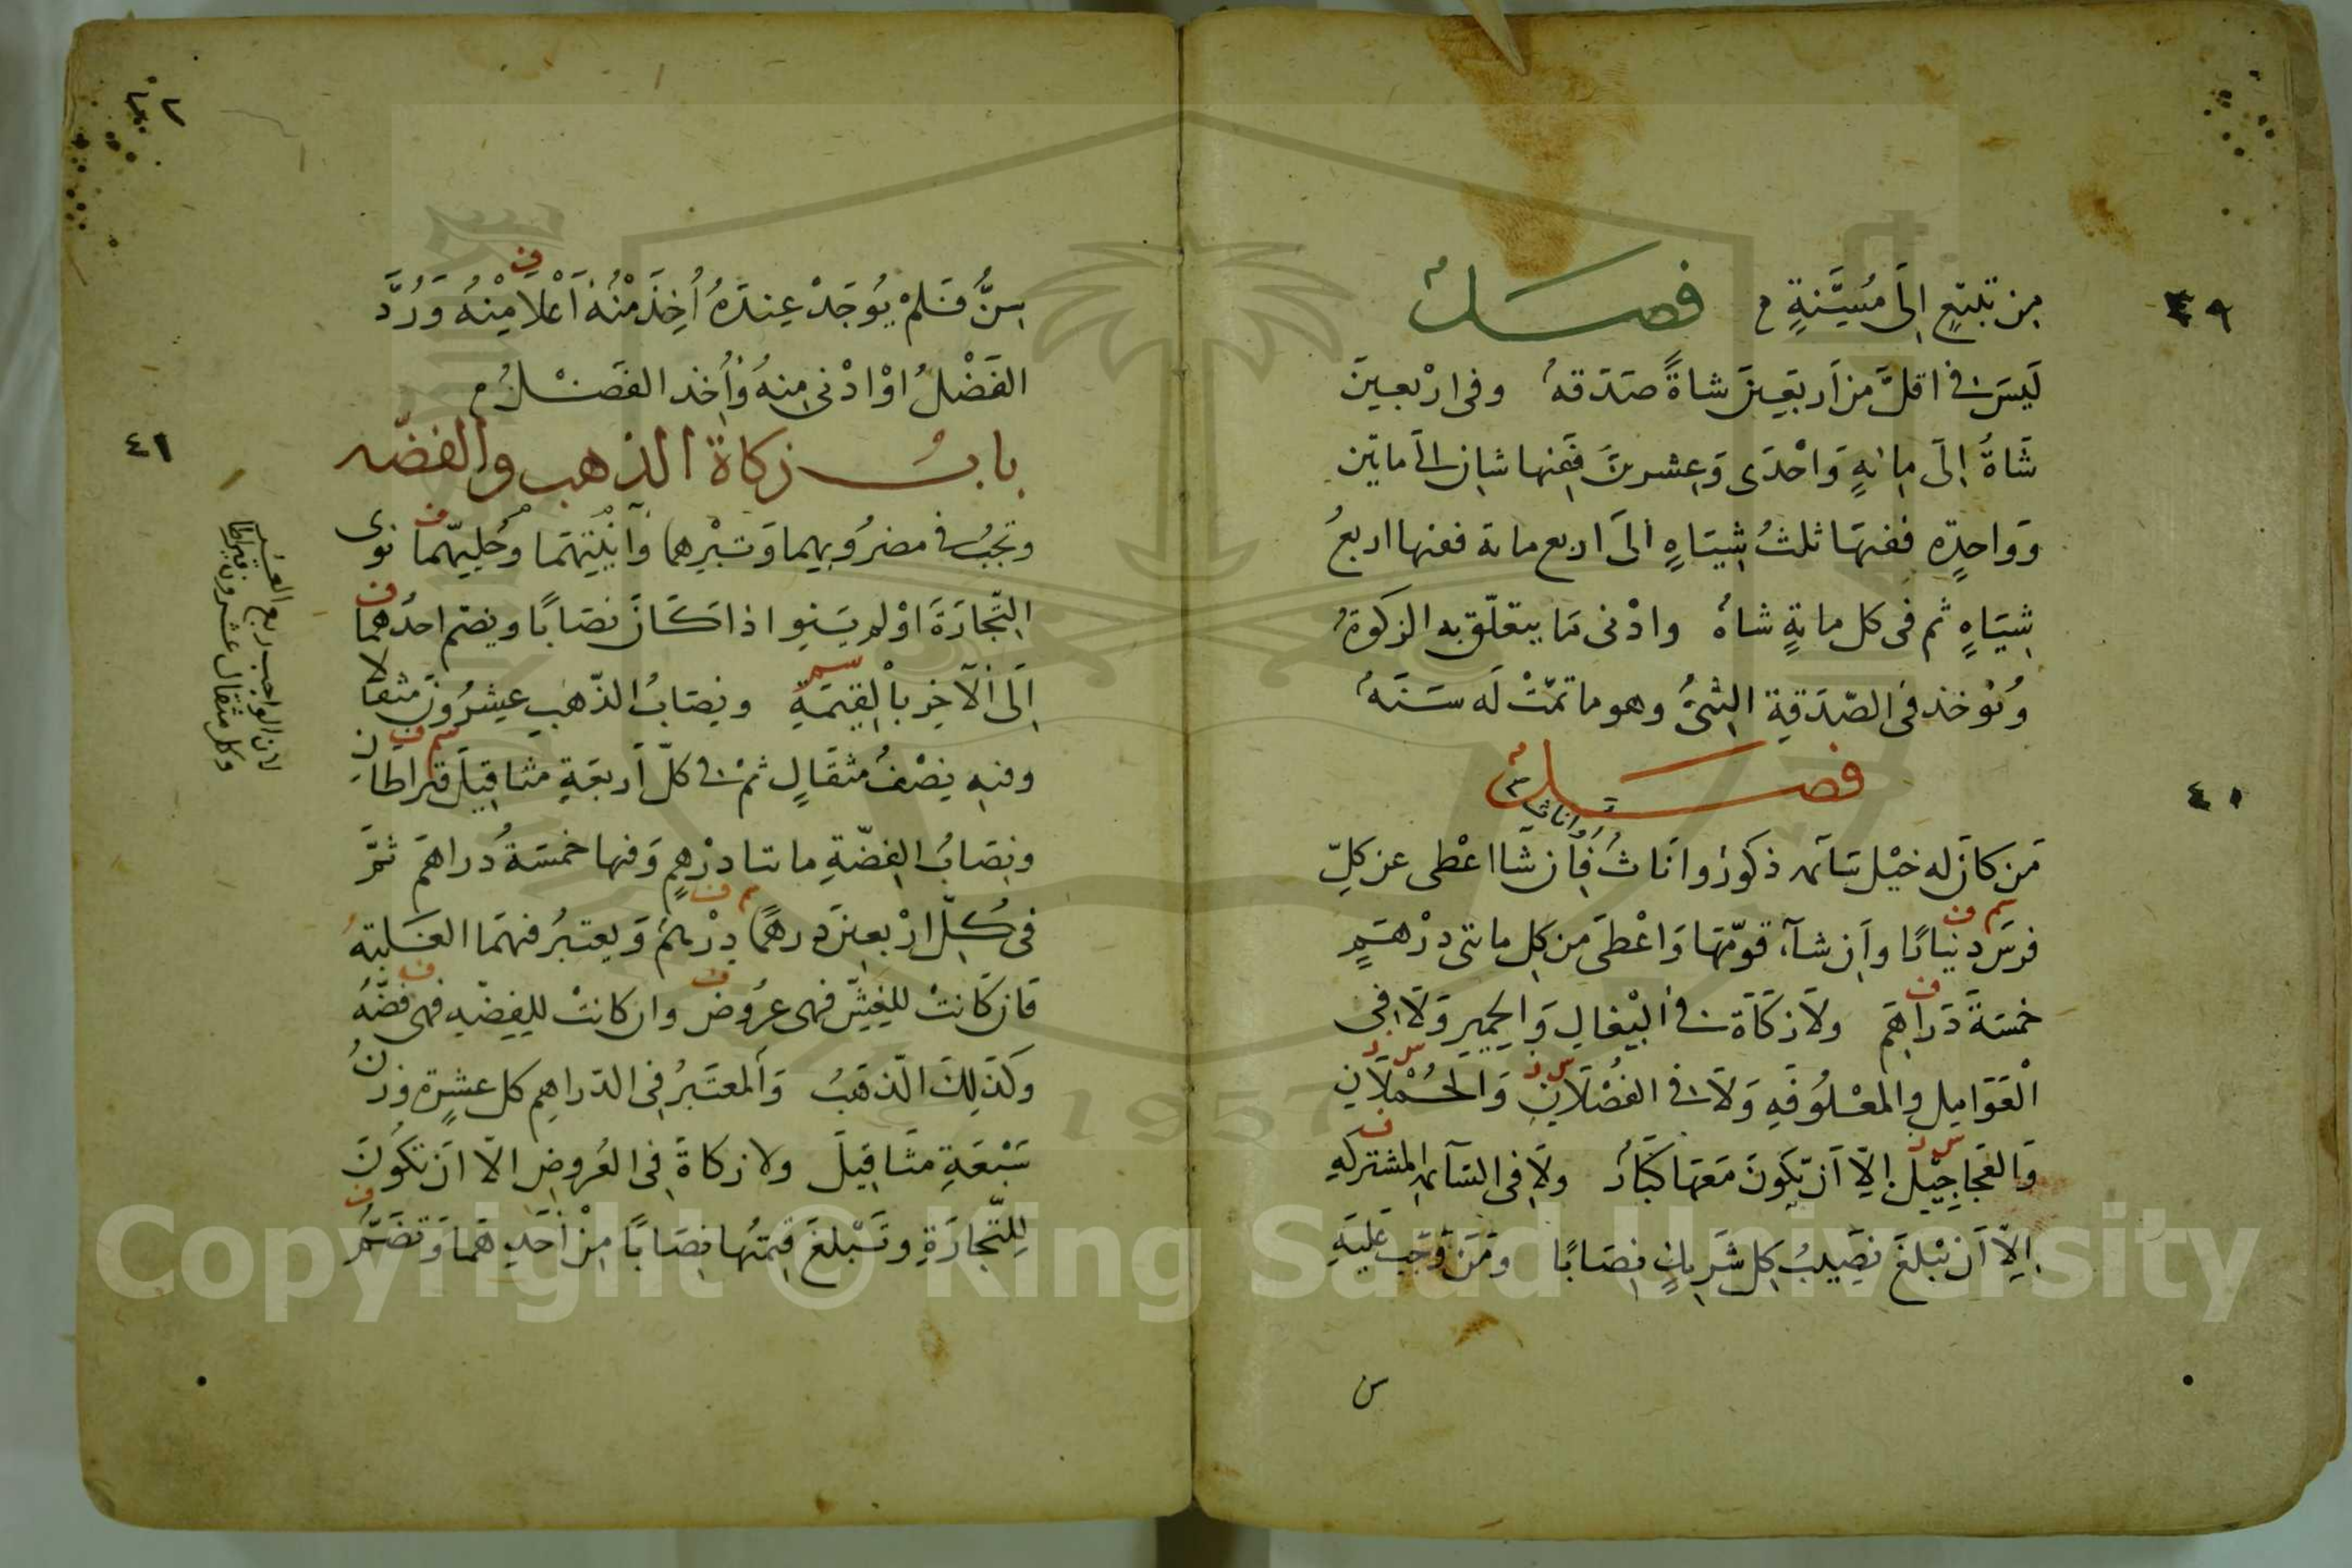 ٤٩
من تبيع الى مُسِنَّةٍ م فصل م
لَيسَ في اقلَّ من اَربَعِينَ شاةً صَدَقهُ وفى ارْبعينَ
شَاةُ اِلَى مِائهٍ وَاحْدَى وَعِشرينَ فَفِيها شاتان الى مايتين
وَوَاحدَةٍ ففيهَا ثلثُ شِيَاهٍ الى اربع ماية ففيها اربعُ
شِيَاهٍ ثم فى كل مايةٍ شاهُ وادْنى ما يتعلّق به الزكوةُ
وُتؤخذ فى الصّدَقةِ الثنىُّ وهو ما تمّتْ لَه سَنَهُ
فصل م
٤٠
او اناث ٣
مَن كانَ له خيْل سَائمه ذكورُ وانَاثُ فاِن شَا اعْطى عن كلِّ
فرسَ دينارًا واِن شآء قوّمَها وَاعْطَى من كِل مايتى درْهَمٍ
خمسَةَ دَراهِمَ ولاَ زكَاةَ في البْغالِ وَالحِمِيرِ وَلاَ فى
الْعَوَامِلِ والمعْلُوفَهِ وَلاَ في الفُصْلاَنِ وَالحُمْلاَنِ
وَالعَجاجِيْلِ اِلاّ اَن يكونَ مَعَهَا كبَارُ ولاَ فى السَآئمه المشتركهِ
اِلاّ اَن تبْلغَ نصِيبُ كِل شَرِيكٍ نِصَابًا ومَن وَجَب عَليَهِ
س
سِنُّ فَلمْ يُوجَدْ عِندَهُ اُخِذَ مْنهُ اَعْلاَ مِنْهُ وَرُدَّ
الفَضْلُ اوْ ادْنى مِنهُ وَاُخِذ الفَضْلُ م
٤١
بابُ زكاة الذهب والفضّه
وتجبُ في مضرُوبِهِما وَتبْرِهما وَآنيَتِهمَا وَحُلِيّهما نوى
التِّجَارَةَ اوْ لم يَنوِ اذا كَانَ نصَابًا ويضم احدُهما
اِلَى الآخِرِ بالْقِيمَةِ ونِصَابُ الذّهَبِ عِشرُونَ مثقالا
وفيه نِصْفُ مثقَالٍ ثمْ في كلّ اَربعَةٍ مثاقِيلَ قيراطانِ
ونِصَابُ الفِضّةِ مايتا درْهمٍ وَفيها خمسَةُ دراهمَ ثمَّ
فى كُلِّ ارْبعينَ درهمًا دِرْهمُ وَيعتبرُ فيهمَا الغَلبَهُ
فَان كَانتْ لِلغِشِّ فهى عرُوضُ وان كانتْ لِلفِضّهِ فهى فضّهُ
وَكَذلِكَ الذّهَبُ وَالمعتَبرُ فى الدّراهِمِ كل عشرة وزنُ
سَبْعَةِ مثَاقِيلَ ولا زكاةَ فى العُروضِ الاّ ان تكُونَ
لِلتّجَارَةِ وَتَبْلغَ قِيمَتُها نِصَابًا مِنْ اَحَدِهمَا وَتضَمُّ
لان الواجب ربع العشر
وكل مثقال عشرون قيراطا
Copyright © King Saud University
1957